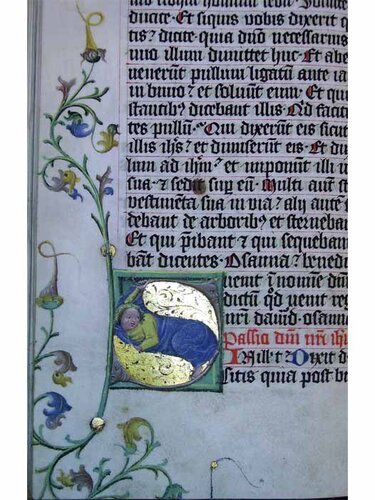 hominum
ducite. Et siquis vobis dixerit q
tis? dicite quia dn̄o necessariꝰ
mo illum dimittet huc. Et abe
venerūt pullum ligatū ante ia
in biuio et soluūt eum. Et qui
stantibꝫ dicebant illis. Qd faci
tes pullū. Qui dixerūt eis sicut
illis ihs̄ et dimiserūt eis. Et du
lum ad ihm̄ et imponūt illi v
sua et sedit sup̄ eū. Multi aūt
vestimēta sua in via alij aūt
debant de arboribꝫ et sterneba
Et qui p̄ibant et qui sequeban
bāt dicentes. Osanna bened
uenit ī nomīe dn̄i
dictū qd uenit reg
nr̄i dauid osanna
Passio dn̄i nr̄i ihu
In ill t Dixit d
Scitis quia post